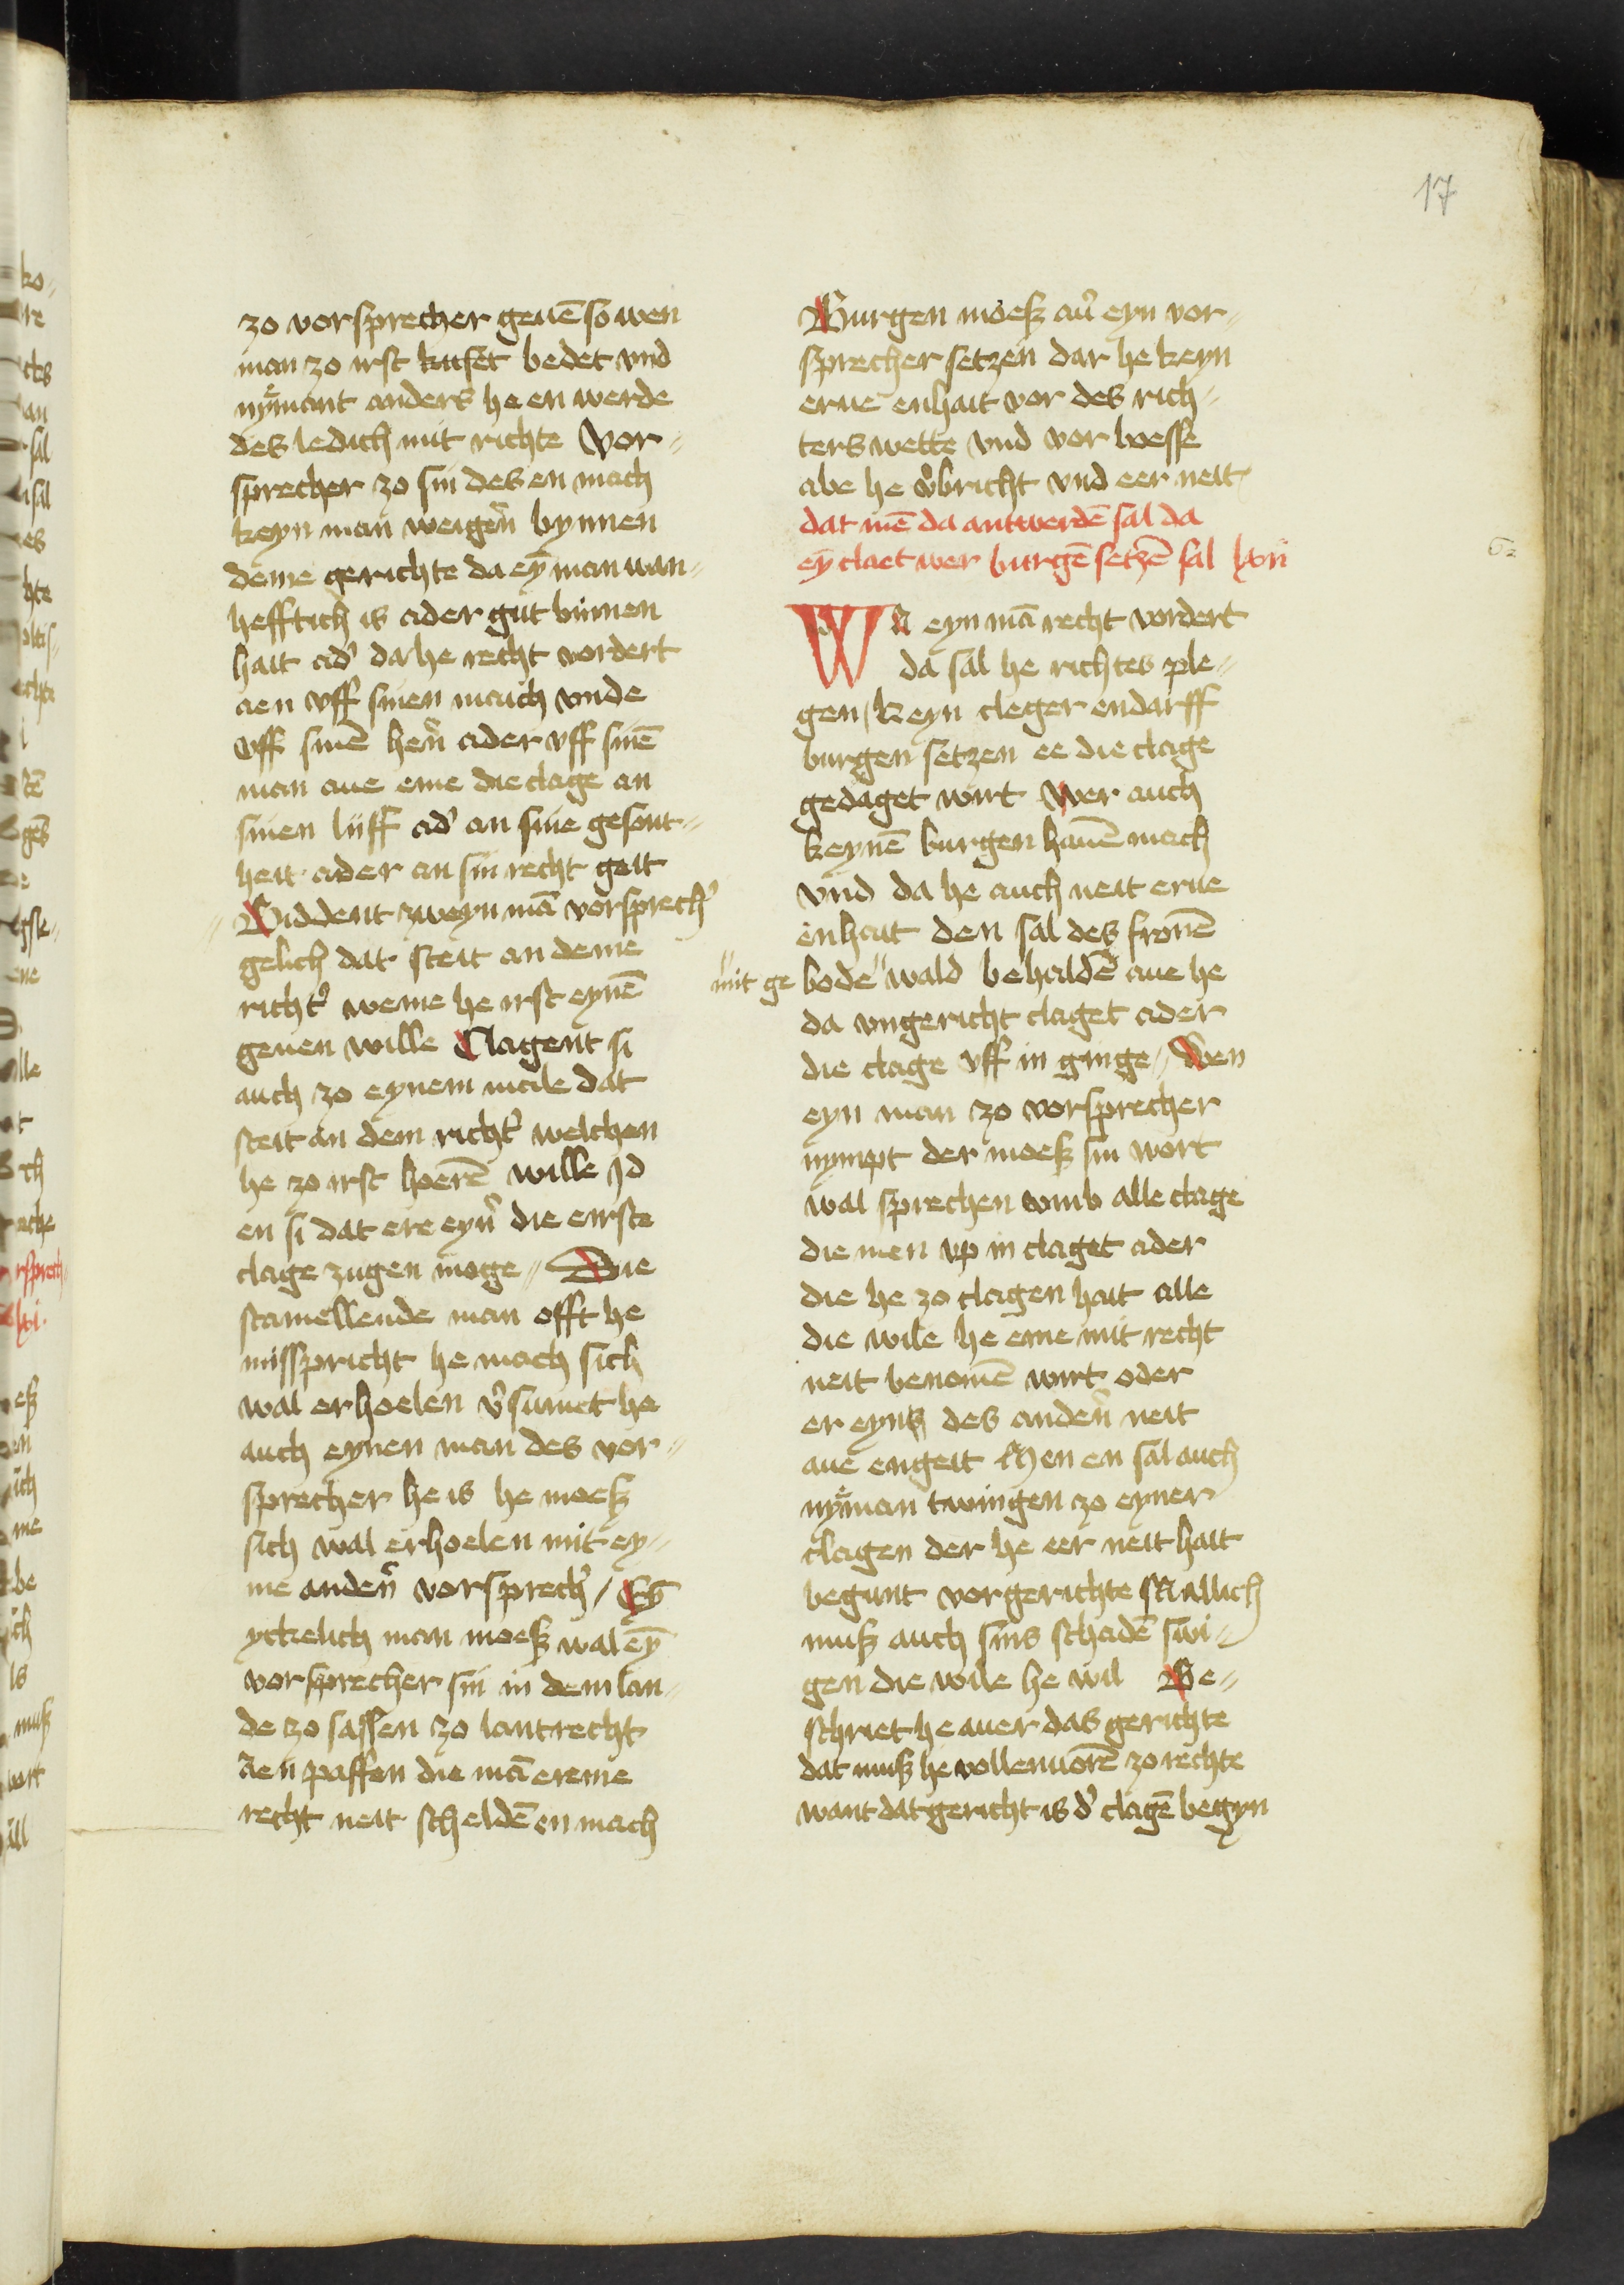 17
zo vorsprecher geuē so wen
man zo irst kuset bedet vnd
nẏmant anders he en werde
des ledich mit richte Vor-
sprecher zo sin des en mach
keyn man weigern̄ bynnen
deme gerichte da eyn̄ man wan-
hefftich is ader gut binnen
hait ad' da he recht vordert
aen vff sinen maich vnde
vff sinē hern̄ ader vff sinē
man aue eme die clage an
sinen lijff ad' an sine gesont-
heit ader an sin recht geit
Biddent zweyn mā vorsprech'
gelich dat steit an deme
richt' weme he irst eynē
geuen wille Clagent si
auch zo eynem male dat
steit an dem richt' welchen
he zo irst hoerē wille Id
en si dat ere eyn' die eirste
clage zugen moge Die
stamellende man offt he
misspricht he mach sich
wal erhoelen v'sumet he
auch eynen man des vor-
sprecher he is he moeß
sich wal erhoelen mit ey-
me andern̄ vorsprech' / Eyn̄
yckelich man moeß wal eyn̄
vorsprecher sin in dem lan-
de zo sassen zo lantrecht
Aen paffen die mā ereme
recht neit scheldē en mach
Burgen moeß au' eyn vor-
sprecher setzen dar he keyn
erue enhait vor des rich-
ters wette vnd vor boesse
abe he v'bricht vnd eer neit
dat mē da antwerdē sal da
eyn̄ claet wer burgē setzē sal lxii
62
WA eyn mā recht vordert
da sal he richtes ple-
gen / Keyn cleger endarff
burgen setzen ee die clage
geclaget wirt Wer auch
keynē burgen hauē mach
vnd da he auch neit erue
enhait den sal des fronē
mit ge bode wald behaldē aue he
da vngericht claget ader
die clage vff in ginge Den
eyn man zo vorsprecher
nympt der moeß sin wort
wal sprechen vmb alle clage
die men vp in claget ader
die he zo clagen hait alle
die wile he eme mit recht
neit benomē wirt oder
er eynß des andern̄ neit
aue engeit Men en sal auch
nẏman twingen zo eyner
clagen der he eer neit hait
begunt vor gerichte Mallich
muß auch sins schadē swi-
gen die wile he wil Be-
schriet he auer das gerichte
dat muß he vollenuorē zo rechte
want dat gericht is d' clagē begyn